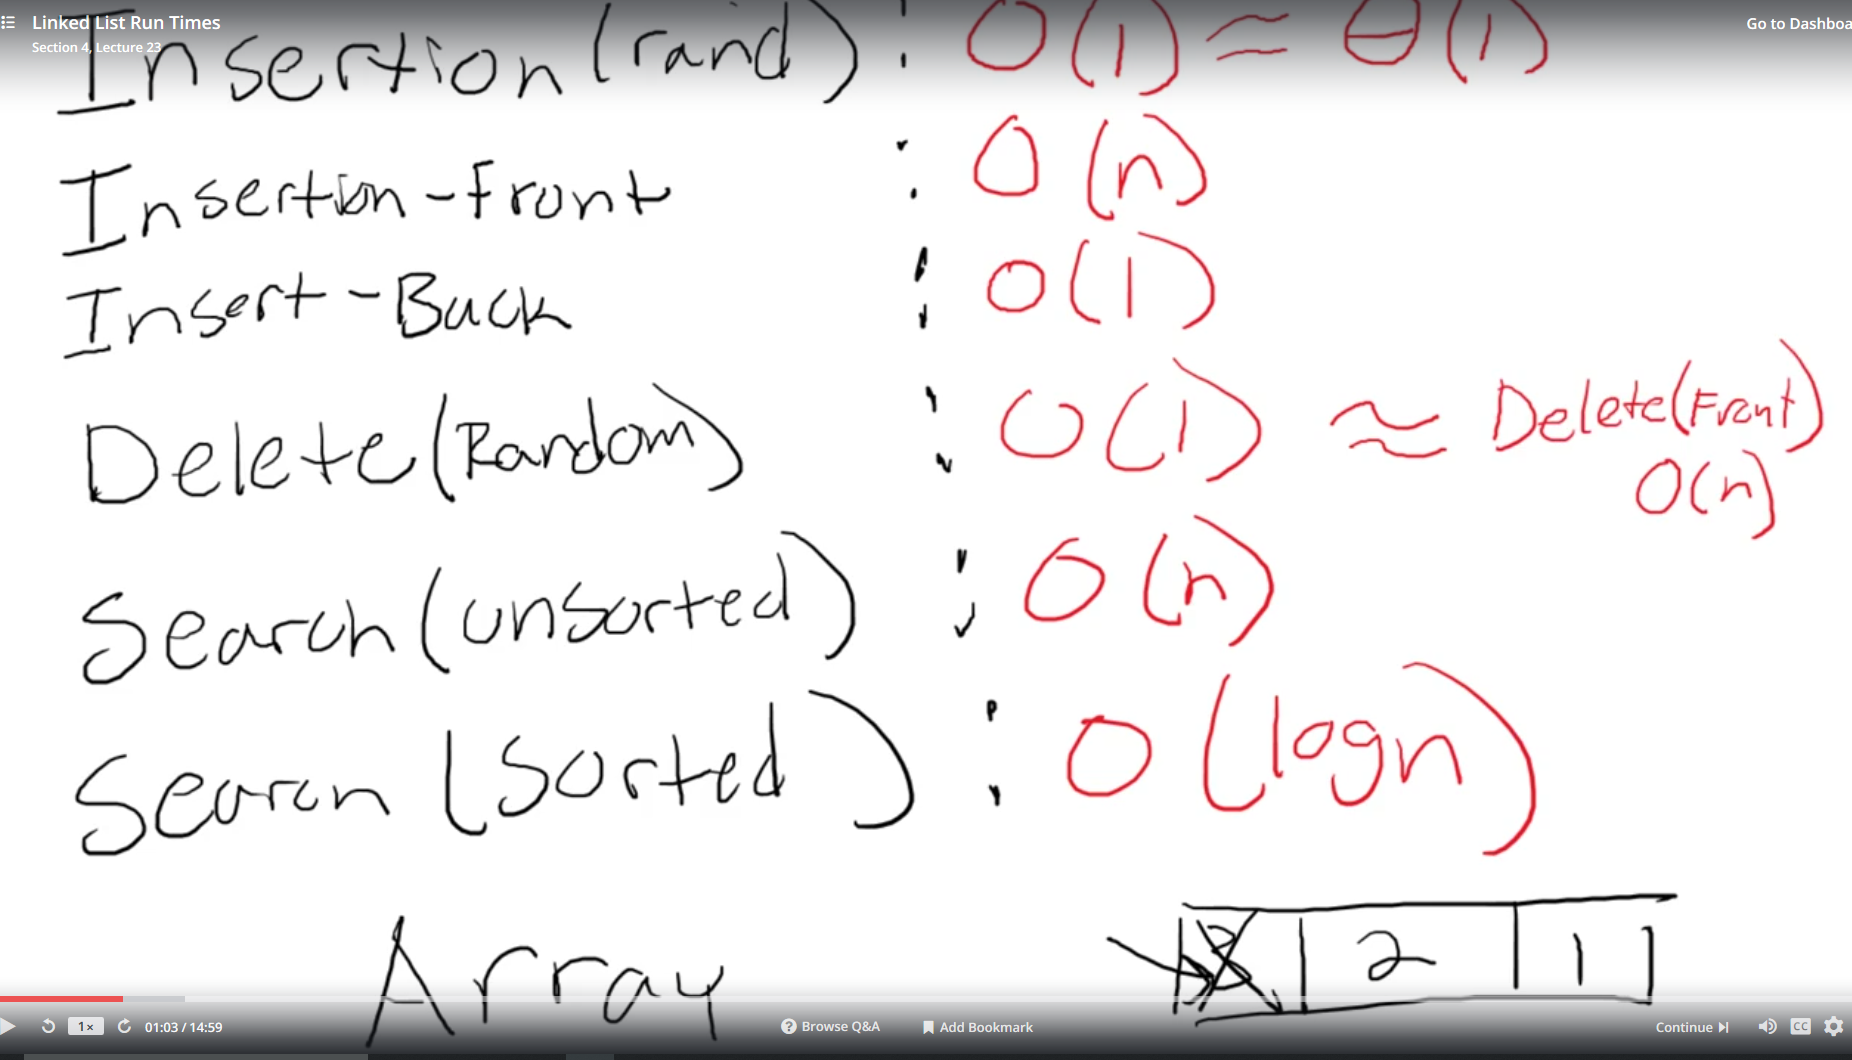 Linked List Run Times
Section 4, Lecture 23
Go to Dashboa
Insertion (rand) : O(1) ≈ θ(1)
Insertion-Front : O(n)
Insert-Back : O(1)
Delete (Random) : O(1) ≈ Delete(Front)
O(n)
Search (unsorted) : O(n)
Search (Sorted) : O(logn)
Array
2 1
1x
01:03 / 14:59
? Browse Q&A
Add Bookmark
Continue
CC